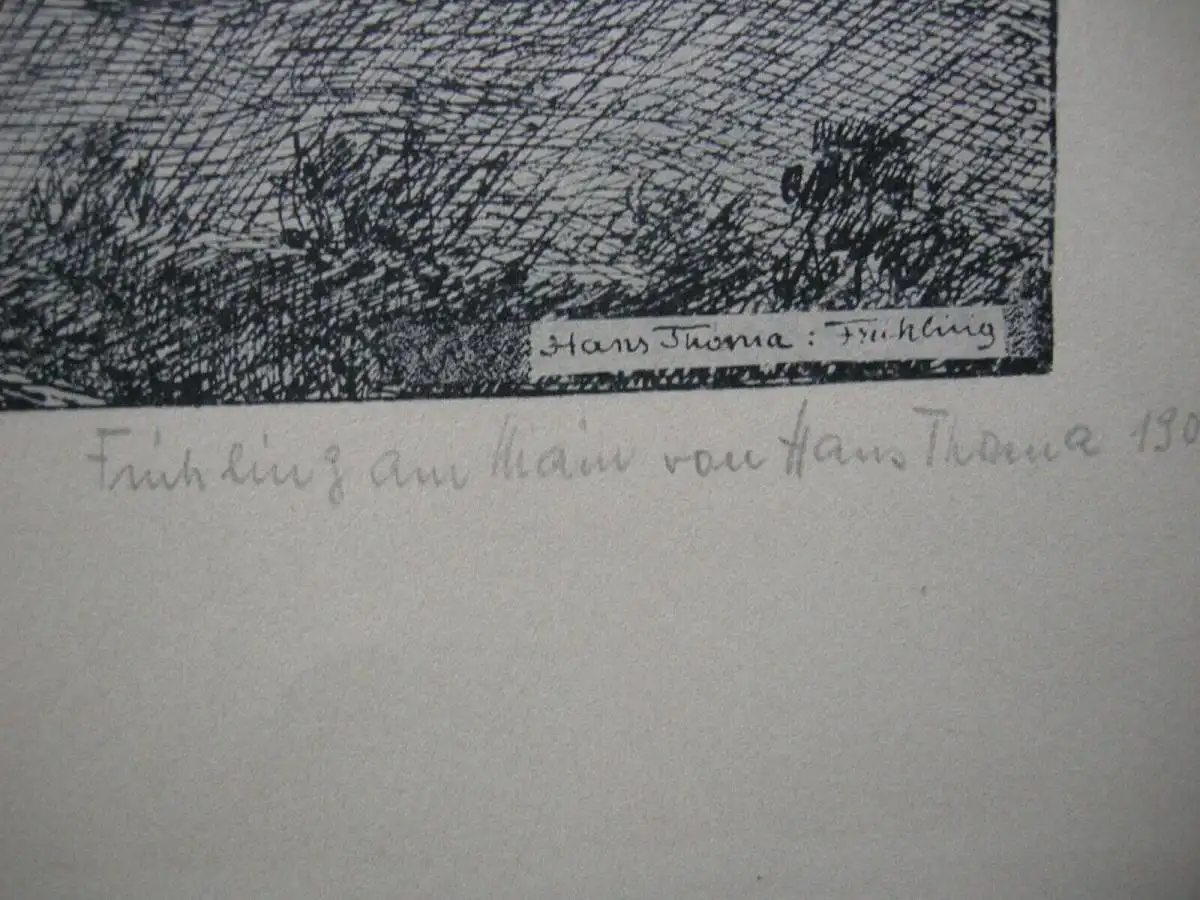 Hans Thoma : Frühling
Frühling am Main von Hans Thoma 190